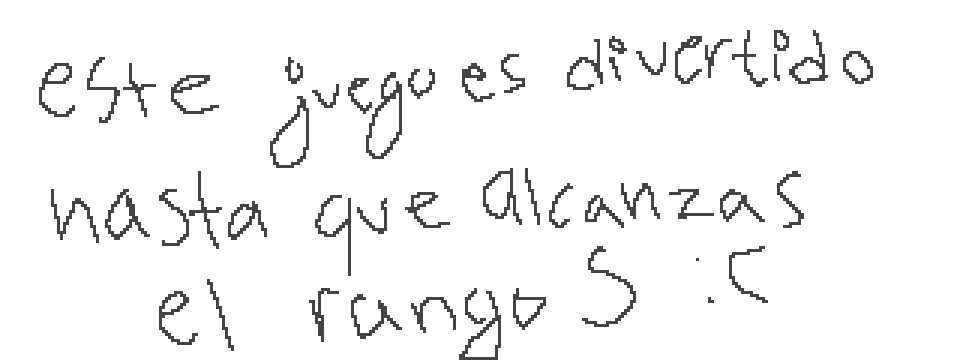 este juego es divertido
hasta que alcanzas
el rango S :(